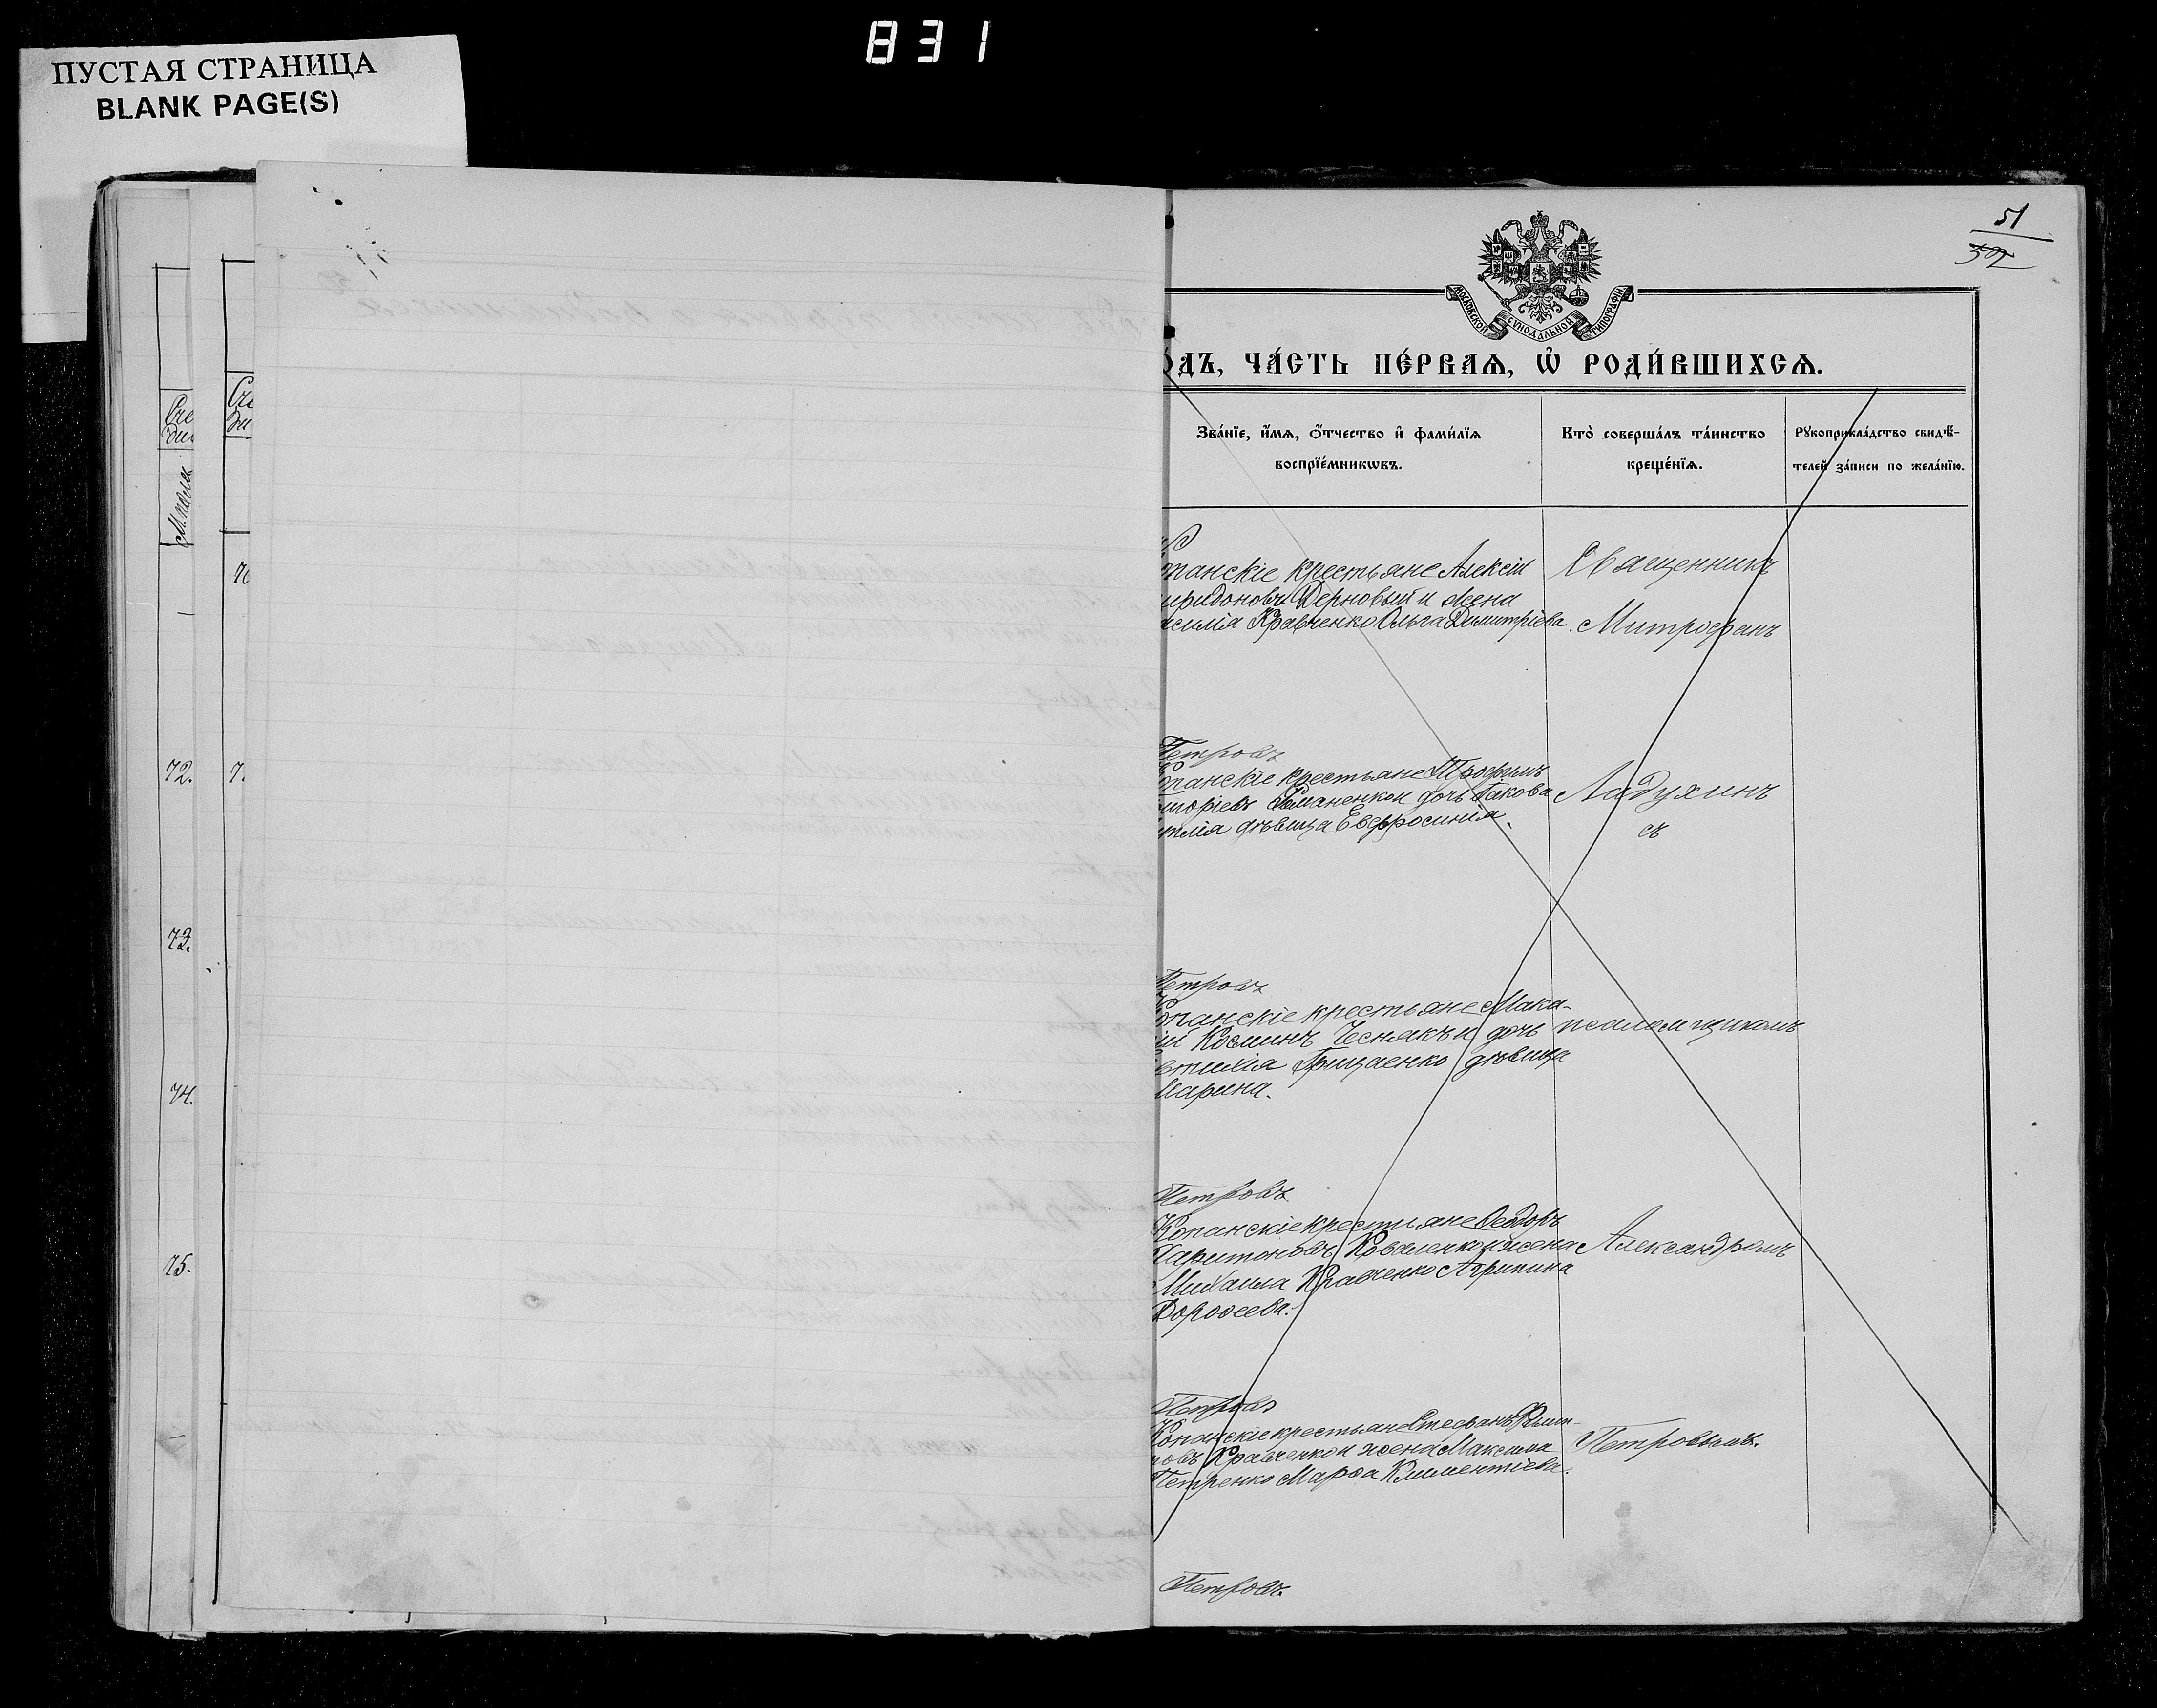 831
ПУСТАЯ СТРАНИЦА
BLANK PAGE(S)
51
МОСКОВСКОЙ СУНОДАЛЬНОЙ ТИПОГРАФІИ
О́ДЪ, ЧА́СТЬ ПЕ́РВАѦ, Ѡ҆ РОДИ́ВШИХСѦ.
Зва́нїе, и҆́мѧ, ѻ҆́тчество и҆ фами́лїѧ
воспрїе́мникѡвъ.
Кто̀ соверша́лъ та́инство
креще́нїѧ.
Рꙋкоприкла́дство свидѣ́-
телей за́писи по жела́нїю.
опанскіе крестьяне Алексій
иридоновъ Дерновый и жена
асилія Кравченко Ольга Димитріева.
Священникъ
Митрофанъ
Петровъ
опанскіе крестьяне Трофимъ
Романенко и дочь Іакова
дѣвица Евфросинія.
Ладухинъ
съ
Петровъ
опанскіе крестьяне Мака-
ій Косминъ Чеснакъ и дочь
Грицаенко дѣвица
Марина.
псаломщикомъ
Петровъ
Копанскіе крестьяне Ѳеодоръ
Харитоновъ Коваленко и жена
Михаила Кравченко Агрипина
Дороѳеева.
Александромъ
Петровъ
Копанскіе крестьяне Стефанъ
новъ Кравченко и жена Максима
Петренко Марѳа Климентіева.
Петровымъ.
Петровъ.
72.
73.
74.
75.